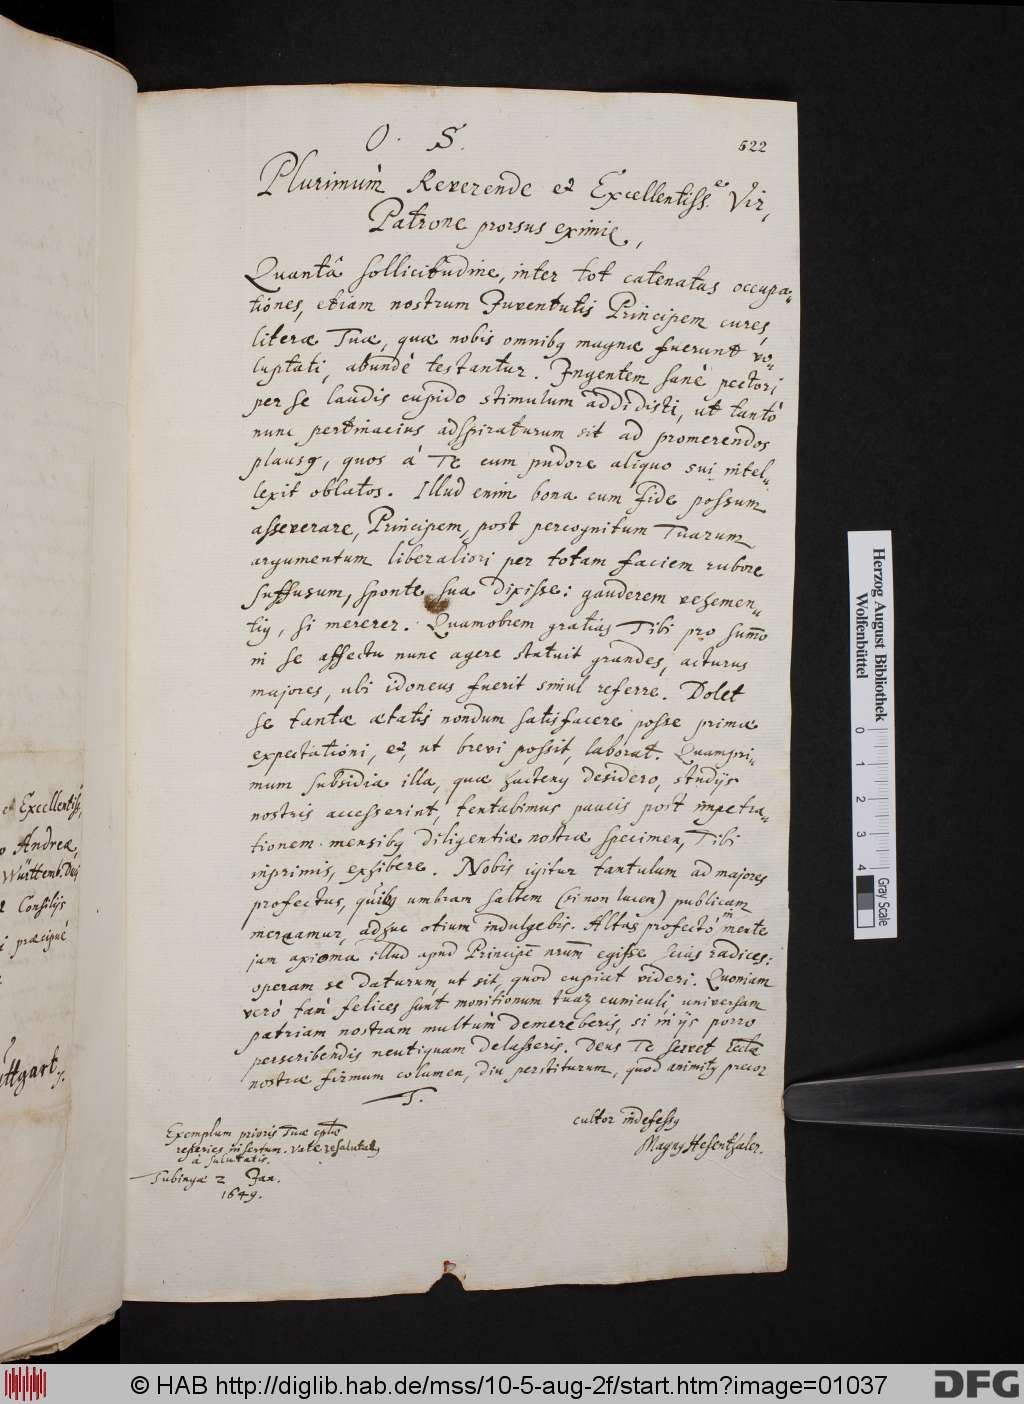 O. S.
622
Plurimùm Reverende et Excellentiss.e Vir,
Patrone prorsus eximie,
Quantâ sollicitudine, inter tot catenatas occupa-
tiones, etiam nostrum Juventutis Principem cures,
literæ Tuæ, quæ nobis omnibq magnæ fuerunt vo-
luptati, abundè testantur. Ingentem sanè pectori
per se laudis cupido stimulum addidisti, ut tantò
nunc pertinacius adspiraturum sit ad promerendos
plausq, quos à Te cum pudore aliquo sui intel-
lexit oblatos. Illud enim bona cum fide possum
asseverare, Principem, post percognitum Tuarum
argumentum liberaliori per totam faciem rubore
suffusum, sponte sua dixisse: gauderem vehemen-
tiq, si mererer. Quamobrem gratias Tibi pro sum̄o
in se affectu nunc agere statuit grandes, acturus
majores, ubi idoneus fuerit simul referre. Dolet
se tantæ ætatis nondum satisfacere posse primæ
expectationi, et, ut brevi possit, laborat. Quampri-
mum subsidia illa, quæ hactenq desidero, studijs
nostris accesserint, tentabimus paucis post impetra-
tionem mensibq diligentiæ nostræ specimen, Tibi
inprimis, exhibere. Nobis igitur tantulum ad majores
profectus, quibq umbram saltem (si non lucem) publicam
mereamur, adhuc otium indulgebis. Altas profectò in mente
jam axioma illud apud Principē nrum̄ egisse scias radices:
operam se daturum, ut sit, quod cupiat videri. Quoniam
verò tàm felices sunt monitionum tuarum cuniculi, universam
patriam nostram multùm demereberis, si in ijs porro
perscribendis neutiquam delasseris. Deus Te servet
nostræ firmum columen, diu perstiturum, quod animitq precor
T.
cultor indefessq
Magnq Hesenthaler.
Exemplum prioris Tuæ
reperies insertum. Vale resalutatq
à salutatis.
Tubingæ 2 Jan.
1649.
et Excellentiss,
o Andreæ,
Württemb.
Consilijs
i præcipuè
uttgart
Herzog August Bibliothek
Wolfenbüttel
0 1 2 3 4
Gray Scale
© HAB http://diglib.hab.de/mss/10-5-aug-2f/start.htm?image=01037
DFG